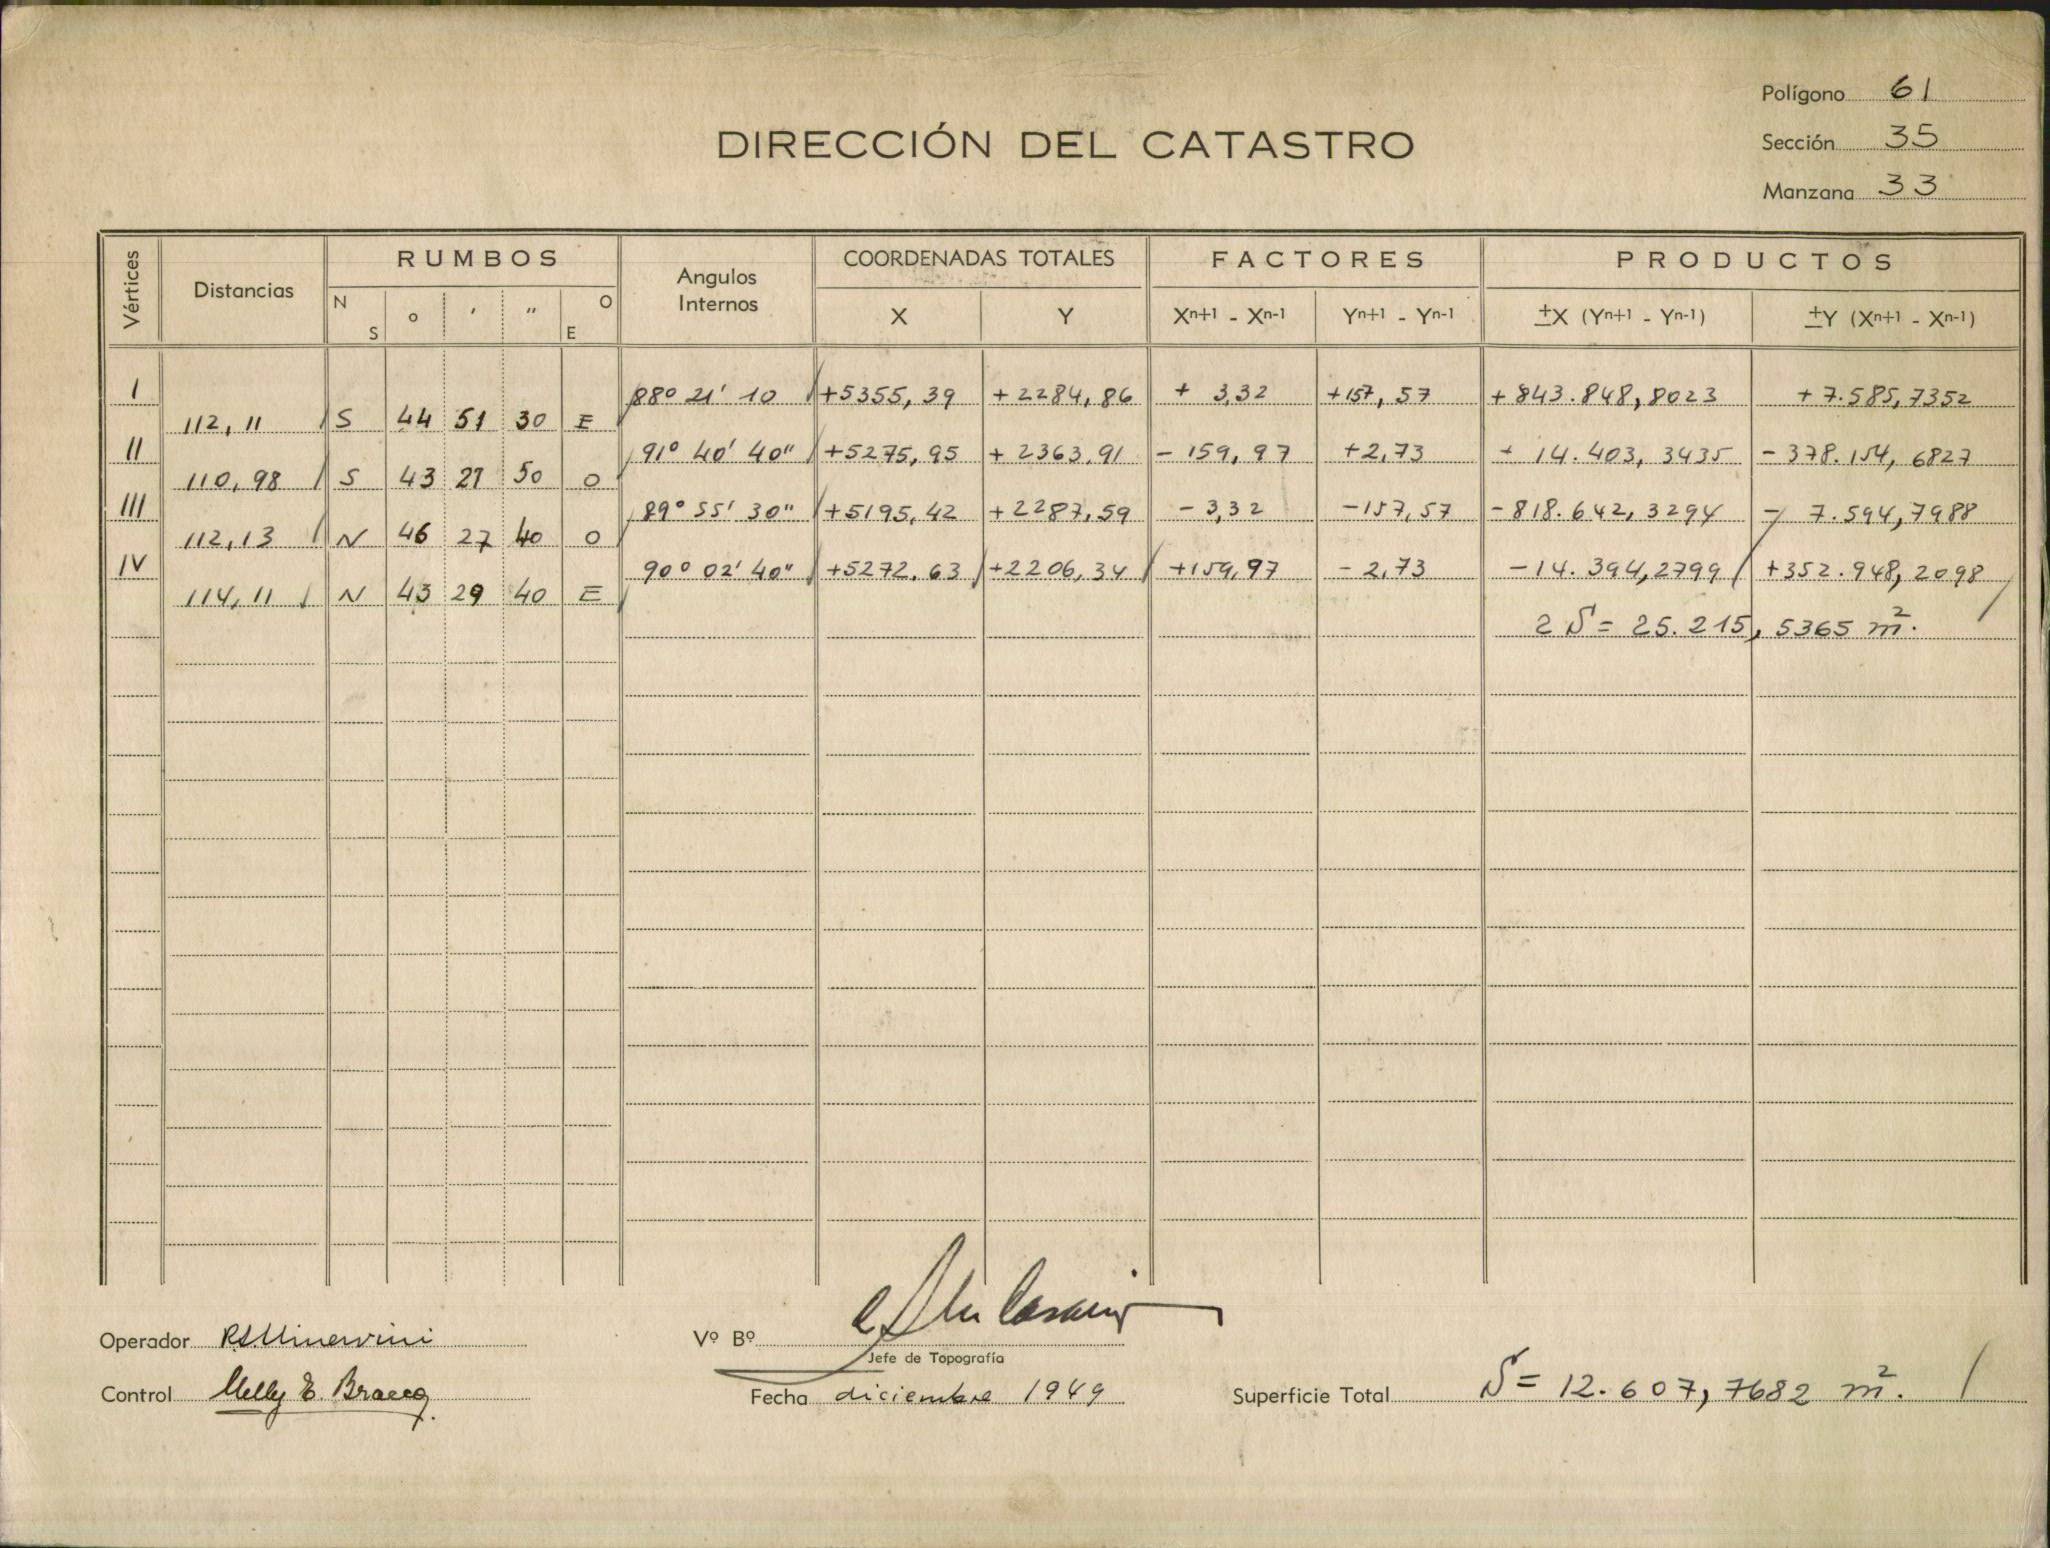 Polígono 61
DIRECCIÓN DEL CATASTRO
Sección 35
Manzana 33
Vértices Distancias RUMBOS Angulos Internos COORDENADAS TOTALES FACTORES PRODUCTOS
N S ° ′ ″ O E X Y Xn+1 - Xn-1 Yn+1 - Yn-1 ±X (Yn+1 - Yn-1) ±Y (Xn+1 - Xn-1)
I 88° 21' 10 +5355,39 +2284,86 + 3,32 +157,57 +843.848,8023 +7.585,7352
112,11 S 44 51 30 E
II 91° 40' 40" +5275,95 +2363,91 -159,97 +2,73 + 14.403,3435 -378.154,6827
110,98 S 43 27 50 O
III 89° 55' 30" +5195,42 +2287,59 -3,32 -157,57 -818.642,3294 - 7.594,7988
112,13 N 46 27 40 O
IV 90° 02' 40" +5272.63 +2206,34 +159,97 -2,73 -14.394,2799 +352.948,2098
114,11 N 43 29 40 E
2 S = 25.215,5365 m².
Operador R.S. Minervini
Vº Bº
Jefe de Topografía
Control Nelly E. Bracco
Fecha diciembre 1949
Superficie Total S = 12.607,7682 m².